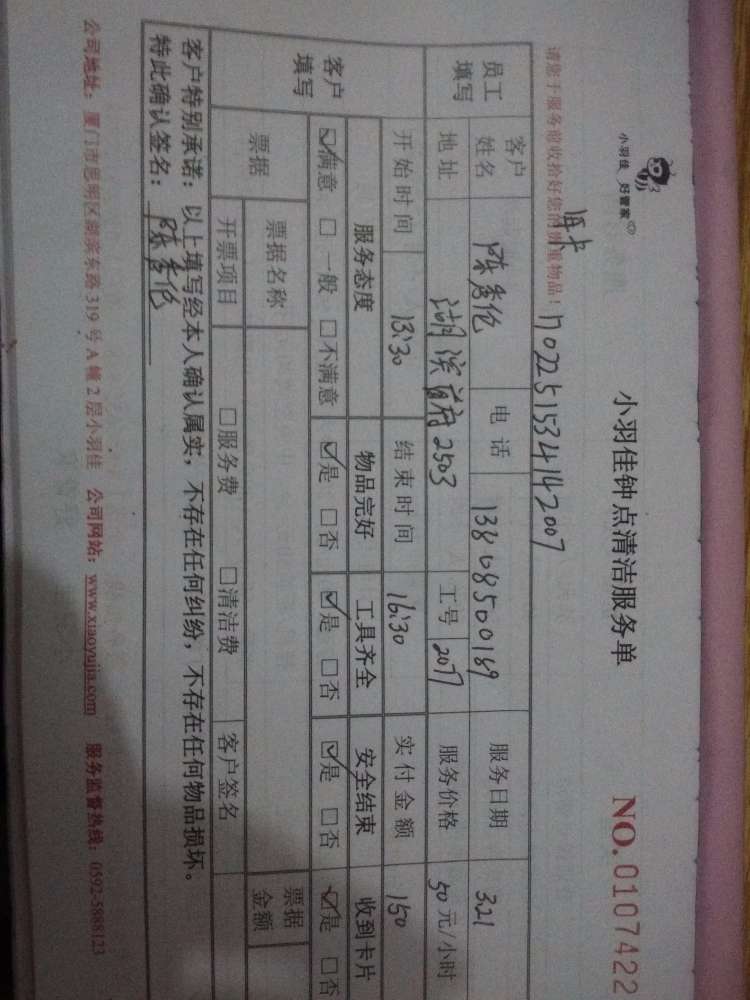 小羽佳 好管家
小羽佳钟点清洁服务单
NO.0107422
请您于服务前收拾好您的贵重物品！
1702251534142007
员工填写 客户姓名 陈秀伦 电话 13808500189 服务日期 3.21
地址 湖滨首府2503 工号 2077 服务价格 50元/小时
客户填写 开始时间 13:30 结束时间 16:30 实付金额 150
服务态度 物品完好 工具齐全 安全结束 收到卡片
☑满意 □一般 □不满意 ☑是 □否 ☑是 □否 ☑是 □否 ☑是 □否
票据 票据名称 票据金额
开票项目 □服务费 □清洁费 客户签名
客户特别承诺：以上填写经本人确认属实，不存在任何纠纷，不存在任何物品损坏。
特此确认签名：陈秀伦
公司地址：厦门市思明区湖滨东路319号A幢2层小羽佳 公司网站：www.xiaoyujia.com 服务监督热线：0592-5888123